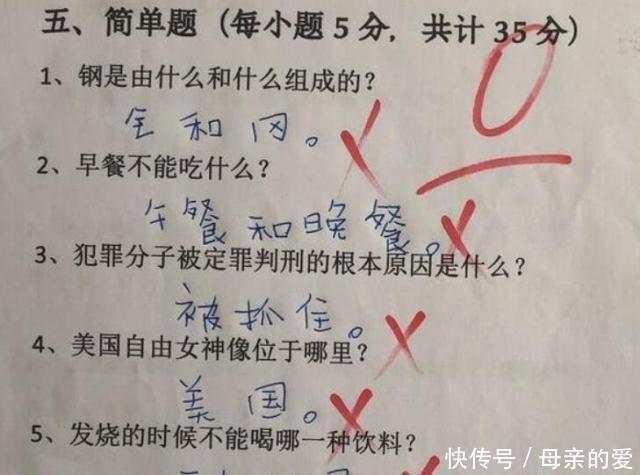 五、简单题（每小题5分，共计35分）
0
1、钢是由什么和什么组成的？
钅和冈。
2、早餐不能吃什么？
午餐和晚餐。
3、犯罪分子被定罪判刑的根本原因是什么？
被抓住。
4、美国自由女神像位于哪里？
美国。
5、发烧的时候不能喝哪一种饮料？
快传号／母亲的爱